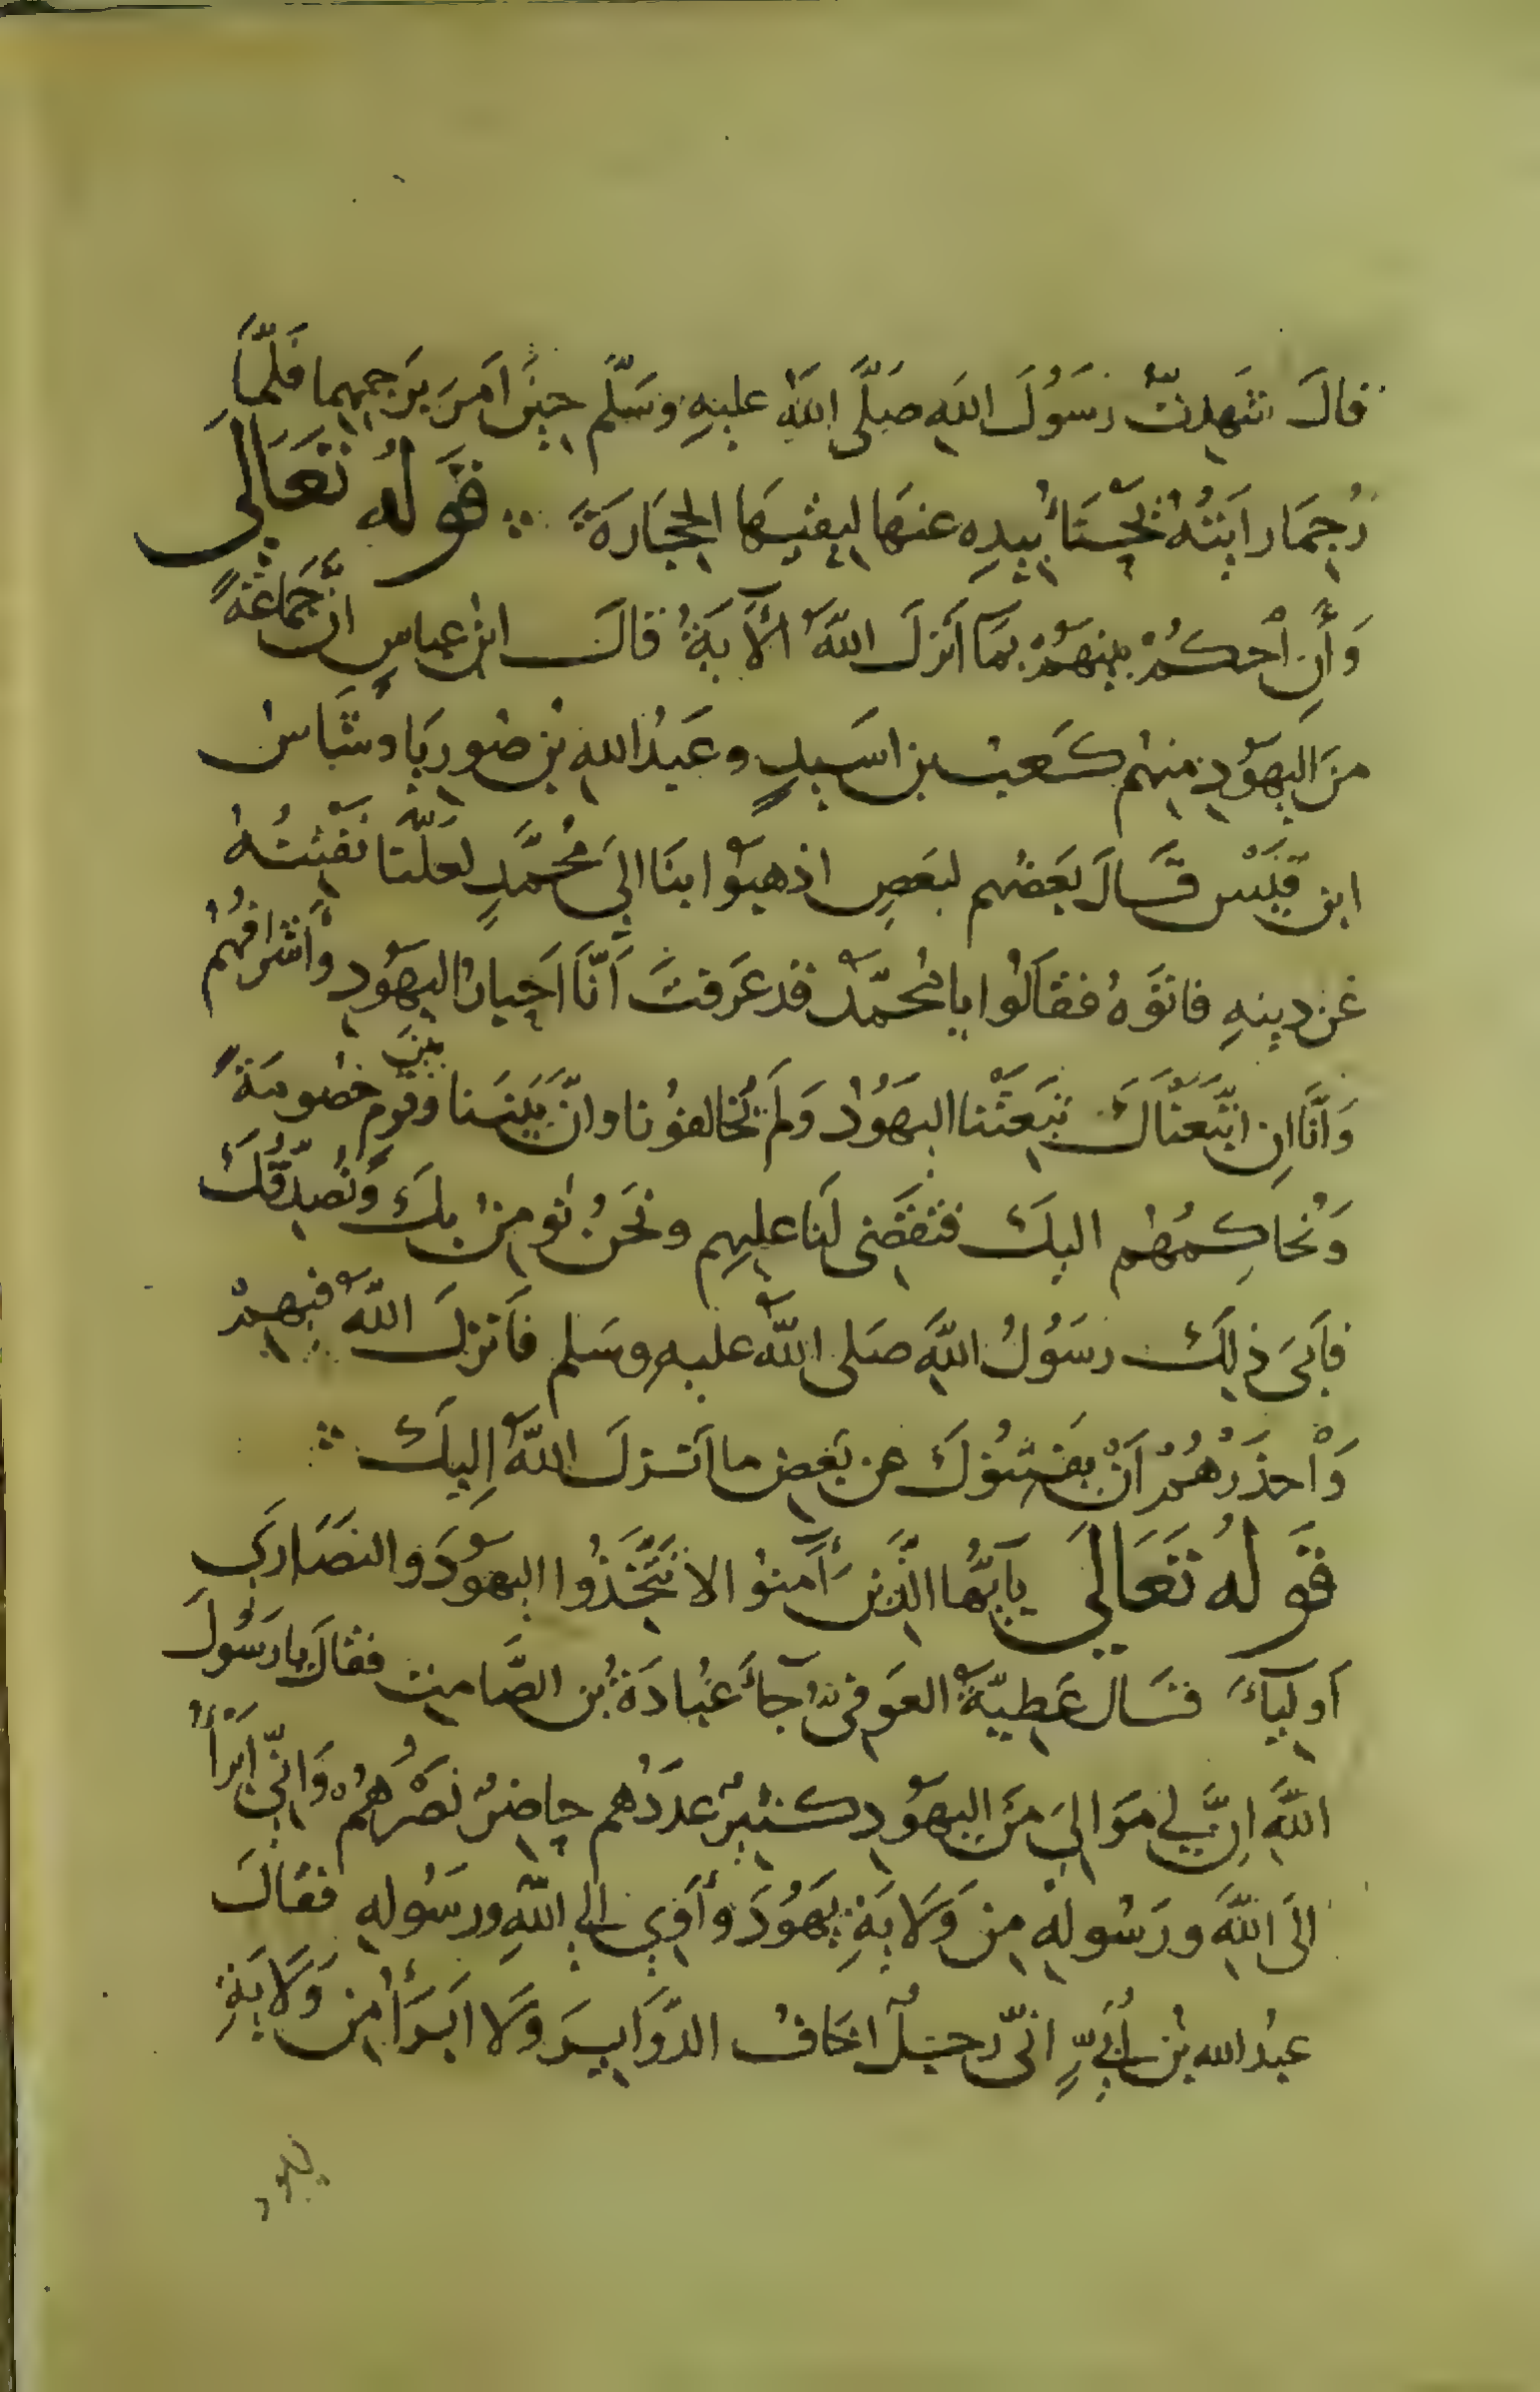 قالَ شَهِدتُّ رَسُولَ اللَّهِ صَلَّى اللَّهُ عليهِ وسَلَّم حِينَ امَرَ بِرَجمِهِما فَلَمَّا
رُجِمَا رايتُهُ يَجْنَأُ بِيَدِهِ عنهَا لِيَقِيَهَا الحِجَارَةَ ؞ قَولُه تَعَالَى
وَأَنِ احْكُمْ بينهُمْ بمَا أنزلَ اللَّهُ الآيَةُ قالَ ابنُ عباسٍ إنَّ جَمَاعَةً
منَ اليَهُودِ منهُم كَعبُ بن اسَيدٍ وعَبدُ اللهِ بن صُورِيَا وشَاسُ
ابن قَيْس قَالَ بَعضُهم لبَعضٍ اذهبُوا بنَا إلى مُحَمَّدٍ لعَلَّنا نَفتِنُهُ
عَن دِينِهِ فاتَوهُ فقالُوا يا مُحمَّدُ قد عَرَفتَ أنَّا احبَارُ اليَهُودِ وأشرافُهُم
وَأنَّا إنِ اتَّبَعنَاكَ تَبِعَتْنا اليَهُودُ وَلَم يُخالفُونا وانَّ بَينَنا وبينَ قَومٍ خصُومَةً
وَنُحَاكِمُهُم اليكَ فتَقضى لَنا عليهِم ونَحنُ نُومِنُ بِكَ ونُصَدِّقُكَ
فَأبَى ذلِكَ رسَوُلُ اللَّهِ صَلى اللَّهُ عليهِ وسَلم فأنزلَ اللَّهُ فيهِمْ
وَاحْذَرْهُمْ أَنْ يَفتِنُوكَ عن بَعضِ ما أنزلَ اللَّهُ إليكَ ؞
قَولُه تَعَالَى يأيُّها الذينَ أمنُوا لا تتَّخذُوا اليهُودَ والنصَارَى
أوليآءَ قَال عَطِيَّةُ العَوفيُّ جآءَ عُبَادَةُ بن الصَّامِت فقالَ يا رَسُولَ
اللَّهِ إنَّ لِي مَوَالِيَ منَ اليهُودِ كثيرٌ عددُهُم حاضرٌ نصْرُهُم وَانّي أبرَأُ
الَى اللَّهِ ورَسُولِهِ مِن وَلَايَةِ يَهُودَ وأوِي الى اللَّهِ ورسُولِهِ فقالَ
عبدُ الله بن أُبَيٍّ انّي رجلٌ اخافُ الدَّوَايِرَ ولَا ابرَأُ مِن وَلَايَةِ